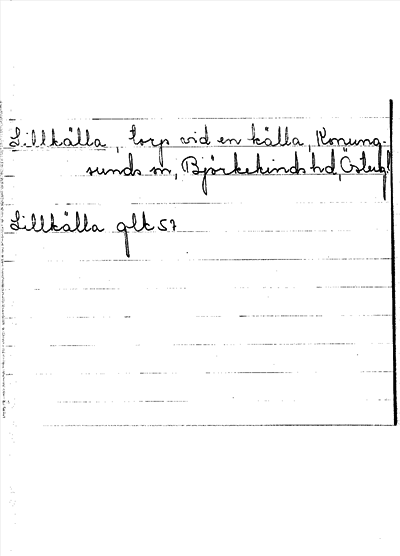 Lillkälla, torp vid en källa, Konung-
sunds sn, Björkekinds hd, Östergl
Lillkälla glt 57